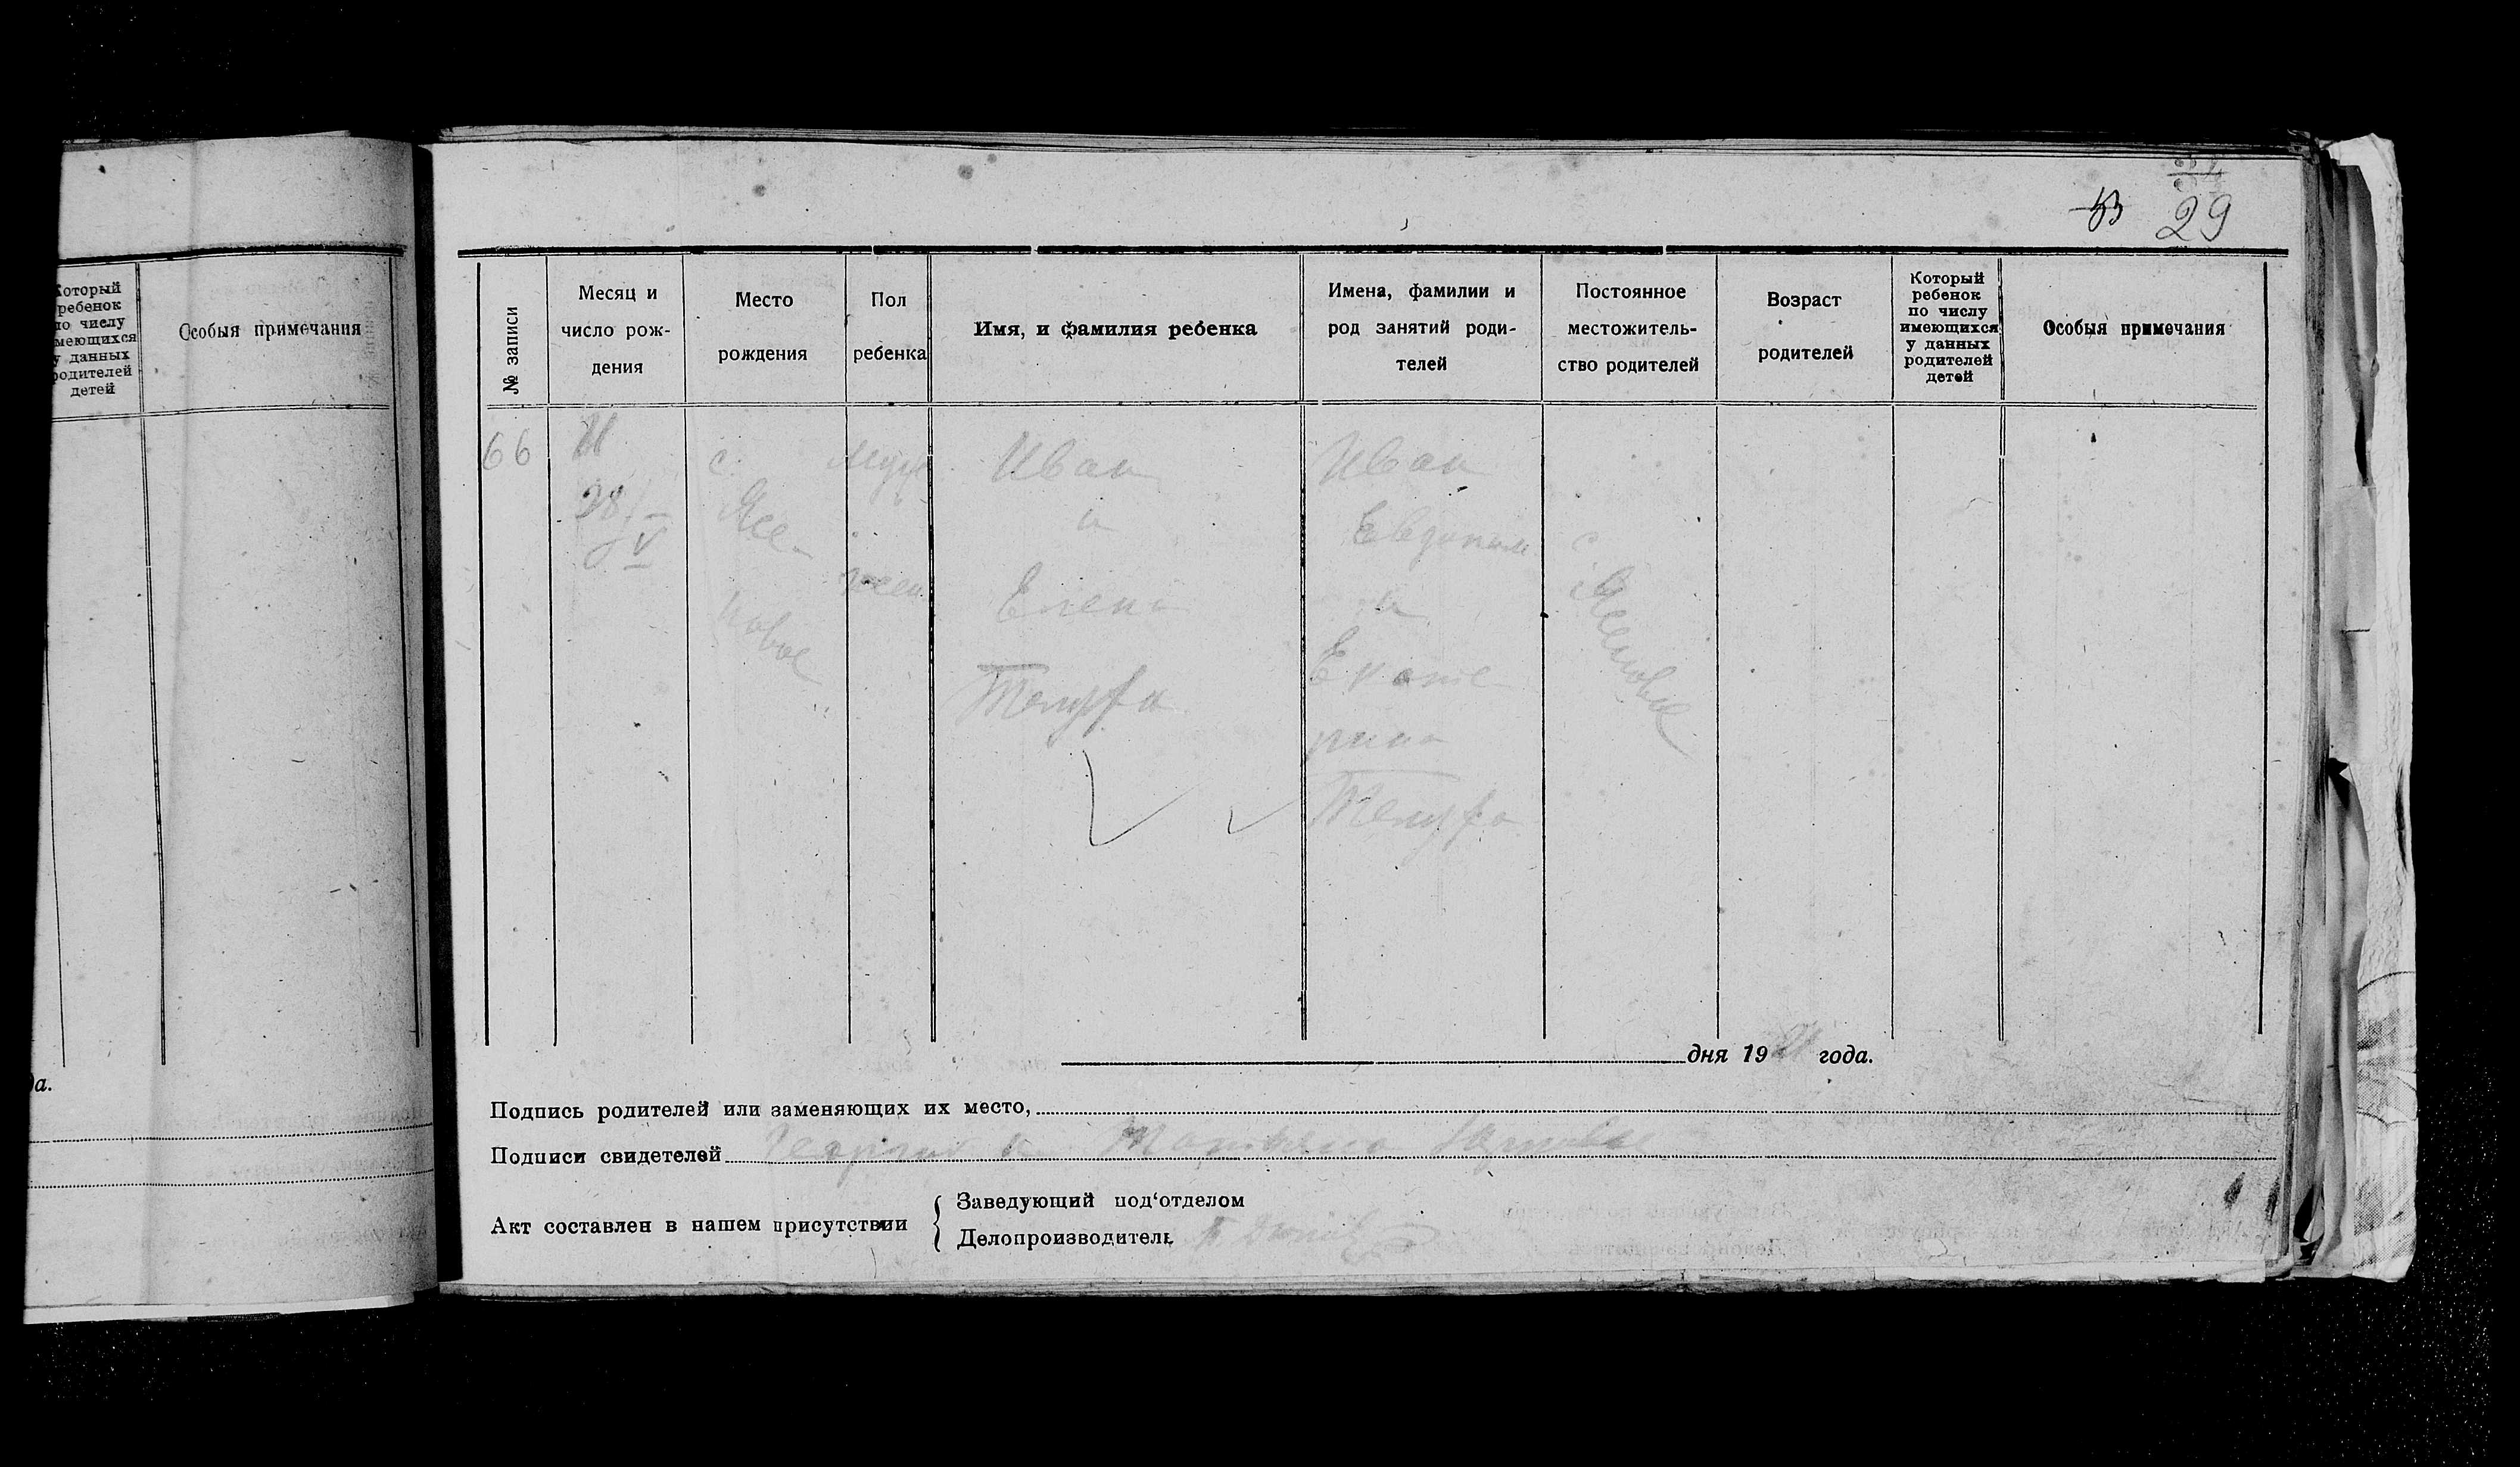 29
Который
ребенок
по числу
имеющихся
у данных
родителей
детей
Особыя примечания
№ записи
Месяц и
число рож-
дения
Место
рождения
Пол
ребенка
Имя, и фамилия ребенка
Имена, фамилии и
род занятий роди-
телей
Постоянное
местожитель-
ство родителей
Возраст
родителей
Который
ребенок
по числу
имеющихся
у данных
родителей
детей
Особыя примечания
66
28/V
с.
Ясе-
новое
муж
жен
Иван
и
Елена
Иван
и
Екате
рина
с
Ясеновое
да.
дня 1921 года.
Подпись родителей или заменяющих их место,
Подписи свидетелей
Акт составлен в нашем присутствии
Заведующий под‘отделом
Делопроизводитель